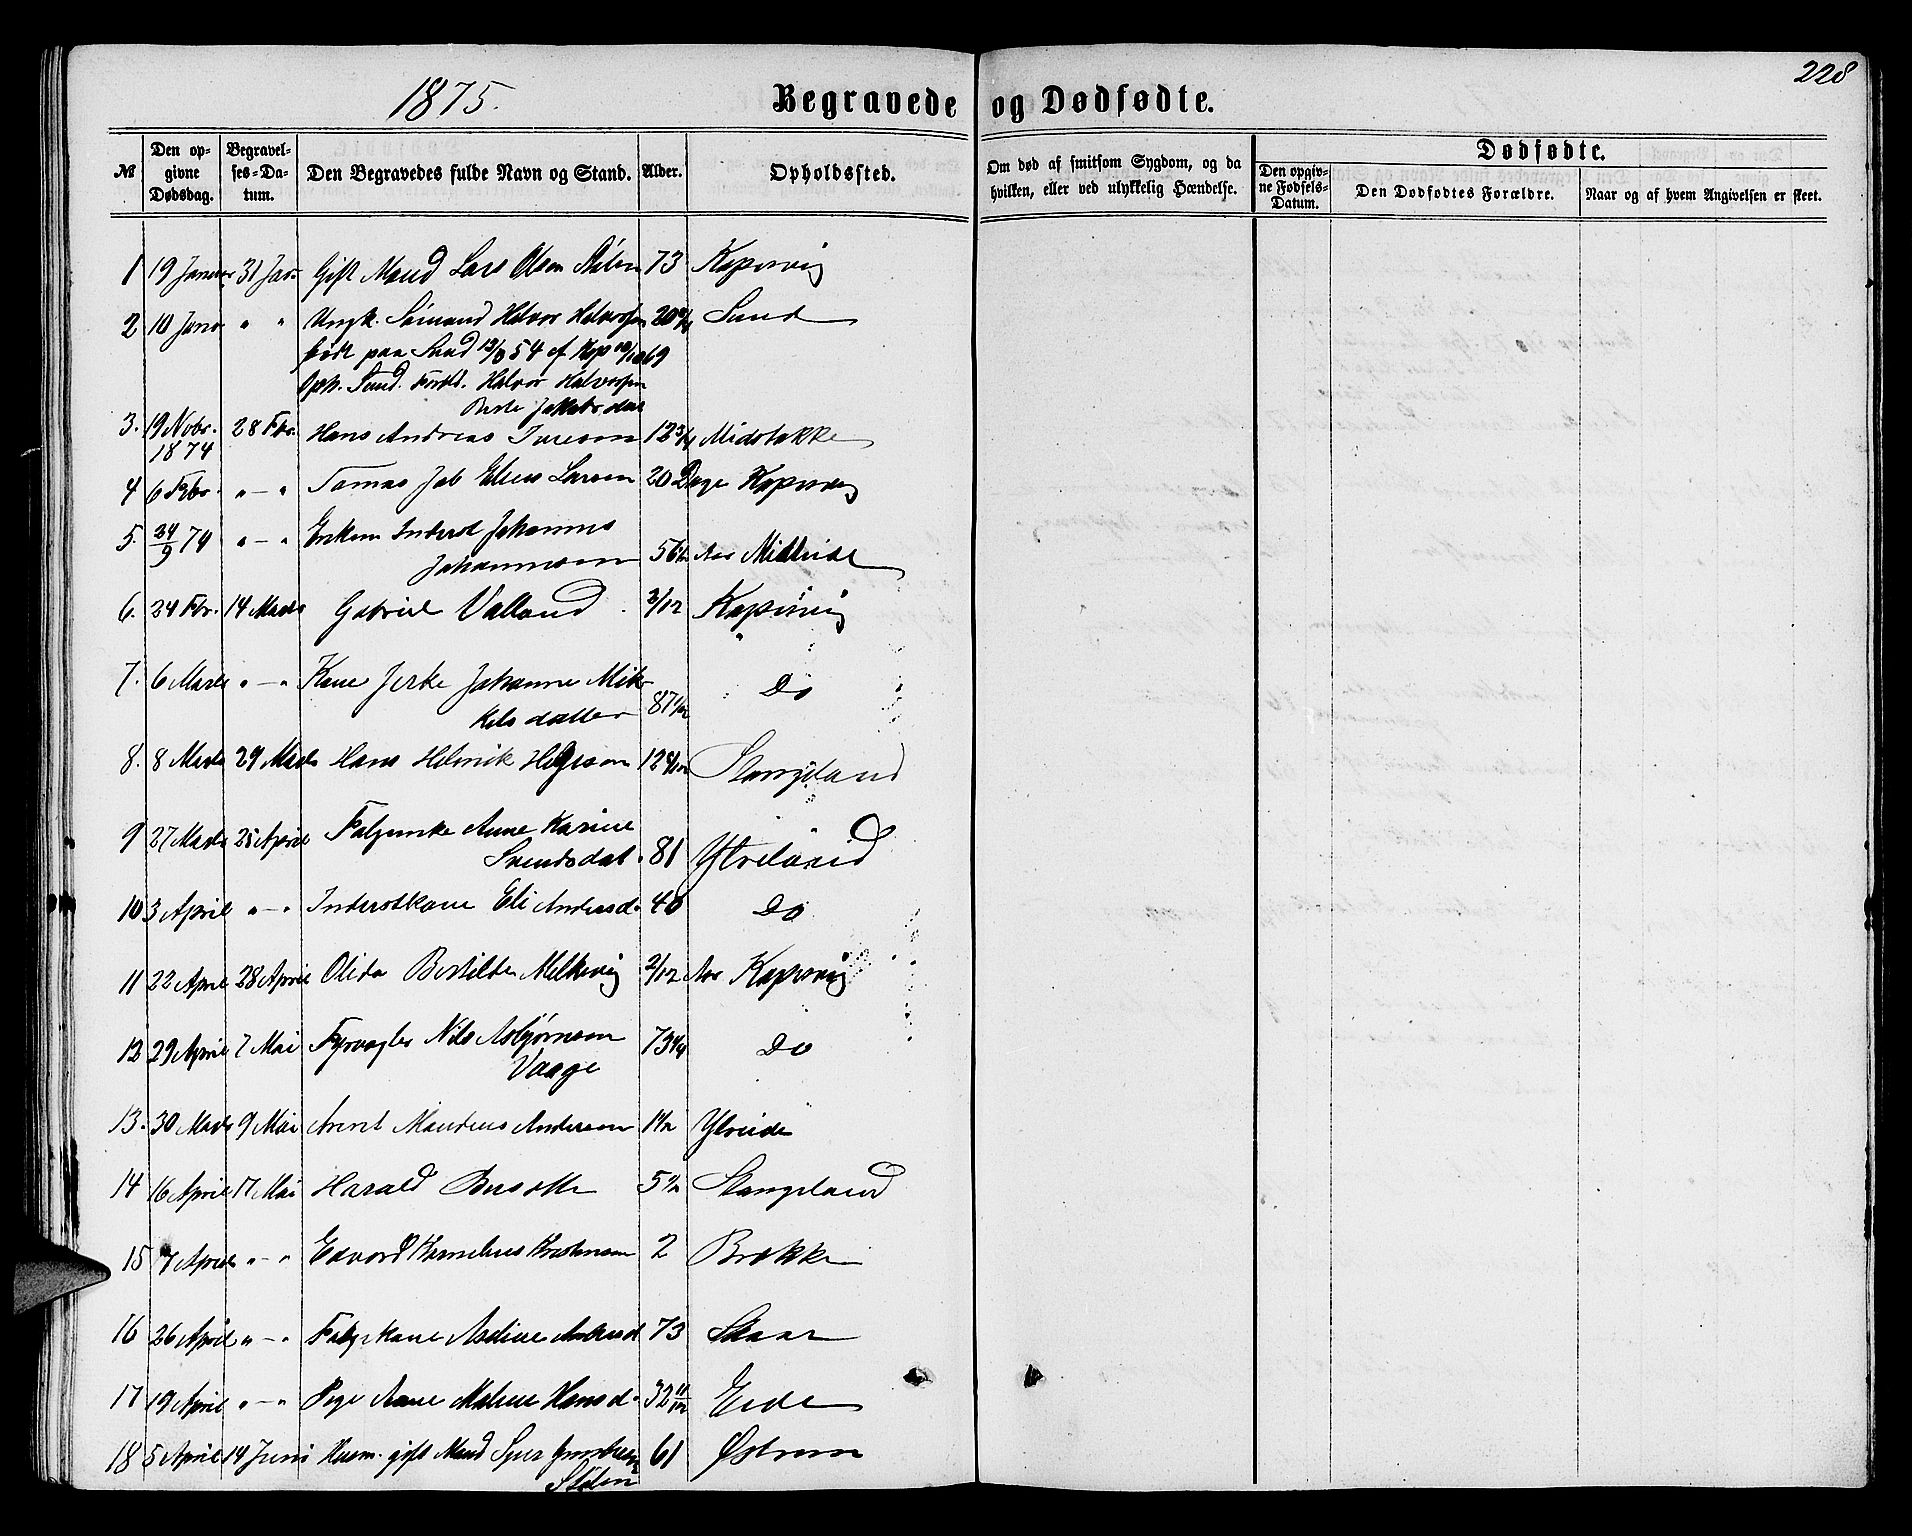 1875.
Begravede og Dødfødte.
228
№
Den opgivne Dødsdag.
Begravelses-Datum.
Den Begravedes fulde Navn og Stand.
Alder.
Opholdssted.
Om død af smitsom Sygdom, og da hvilken, eller ved ulykkelig Hændelse.
Dødfødte.
Den opgivne Fødsels-Datum.
Den Dødfødtes Forældre.
Naar og af hvem Angivelsen er skeet.
1 19 Januar 31 Jan Gift Mand Lars Olsen 73 Kopervig
2 10 Janr " " Ungk. Sømand Helvor Helvorsen 20 Sund
født paa Sund 54 69
Opph. Sund. Foræld. Helvor Halvorsen
Berte Jakobsdat
3. 19 Nobr. 28 Fbr. Hans Andreas 12 Midstøkke
1874
4 6 Febr. " — " Tomas Jab Elius Larsen 20 Dage Kopervig
5. 24/9 74 " — " Enkem Inderst Johannes
Johannesen 56 Aar Mideide
6. 24 Fbr. 14 Marts Gabriel Valland 3/12 Kopervig
7. 6 Marts " — " Kone Jerke Johanne Mik-
kelsdatter 87 Do
8. 8 Marts 29 Marts Hans Helmik 12 Stangeland
9 27 Marts 25 April Anne Karine
Svendsdat. 81 Ytreland
10 3 April " — " Inderstkone Eli Andersd. 40 Do
11 22 April 28 April Olida Bertilde Melkevig 2/12 Aar Kopervig
12 29 April 7 Mai Fyrvogter Nils Asbjørnsen
Vaage 73 Do
13. 30 Marts 9 Mai Andersen Ytreide
14 16 April 17 Mai Harald 5 Stangeland
15 7 April " — " Edvard Kornelius 2 Brekke
16 26 April " — " 73 Skaar
17 19 April " — " Pige Anne Malene Hansd. 32 11/12 Eide
18 5 April 14 Juni Husm. gift Mand 61 Østrem